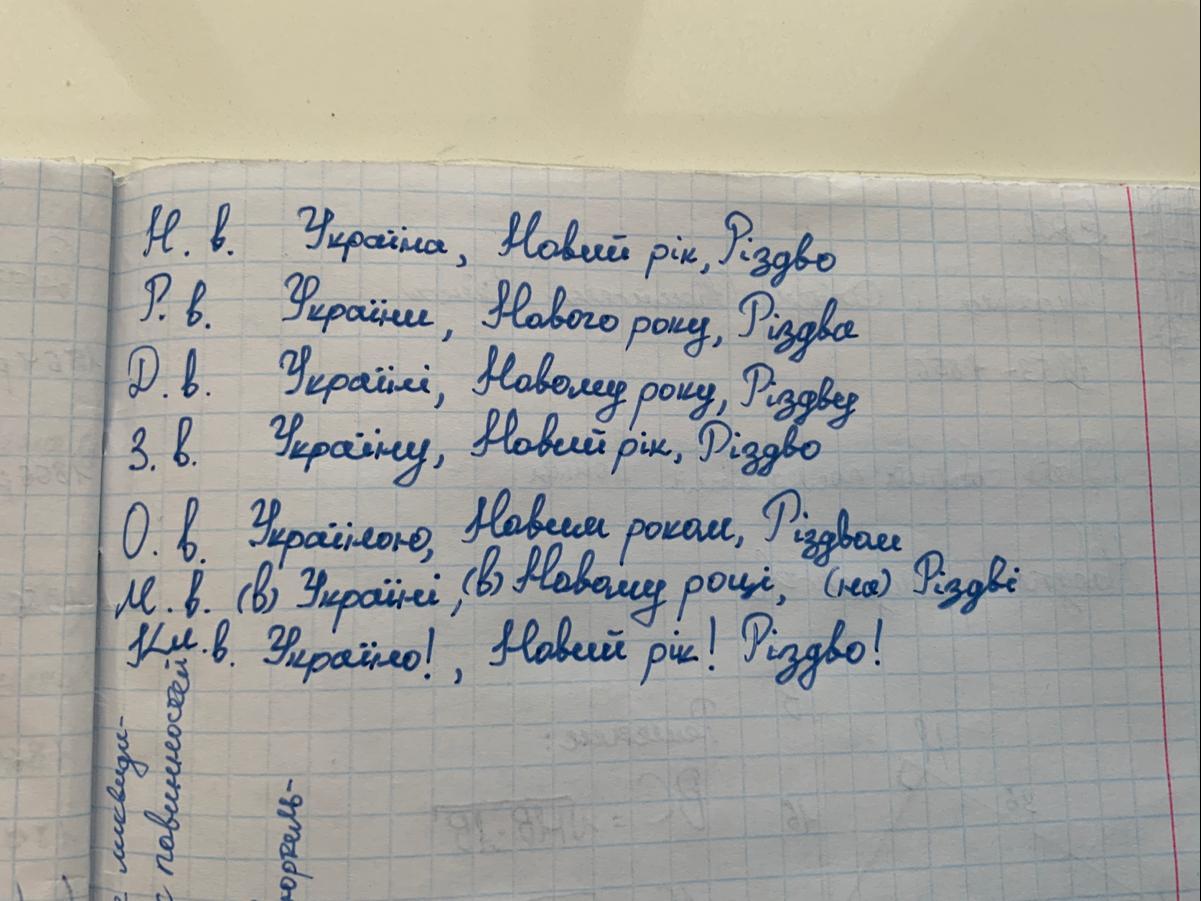 Н. в. Україна, Новий рік, Різдво
Р. в. України, Нового року, Різдва
Д. в. Україні, Новому року, Різдву
З. в. Україну, Новий рік, Різдво
О. в. Україною, Новим роком, Різдвом
М. в. (в) Україні, (в) Новому році, (на) Різдві
Кл. в. Україно!, Новий рік! Різдво!
ликвиди-
повинностей